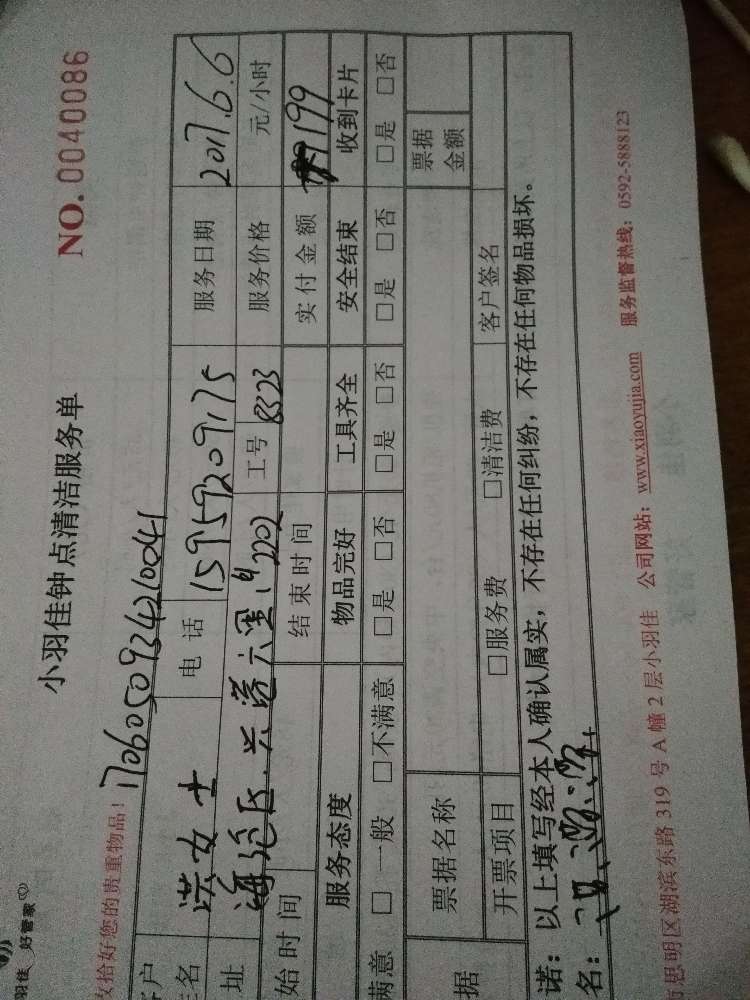 羽佳 好管家
小羽佳钟点清洁服务单
NO. 0040086
收拾好您的贵重物品! 1706050934210041
客户 洪女士 电话 15959209175 服务日期 2017.6.6
姓名
址 海沧区 兴港六里 2202 工号 8323 服务价格 元/小时
始时间 结束时间 实付金额 199
服务态度 物品完好 工具齐全 安全结束 收到卡片
满意 □一般 □不满意 □是 □否 □是 □否 □是 □否 □是 □否
据 票据名称 票据金额
开票项目 □服务费 □清洁费 客户签名
诺: 以上填写经本人确认属实,不存在任何纠纷,不存在任何物品损坏。
名:
思明区湖滨东路 319 号 A 幢 2 层小羽佳 公司网站: www.xiaoyujia.com 服务监督热线: 0592-5888123